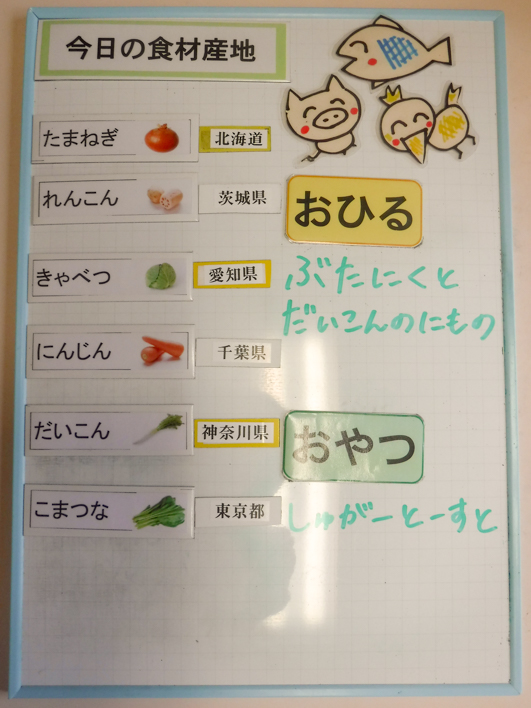 今日の食材産地
たまねぎ 北海道
れんこん 茨城県
きゃべつ 愛知県
にんじん 千葉県
だいこん 神奈川県
こまつな 東京都
おひる
ぶたにくと
だいこんのにもの
おやつ
しゅがーとーすと